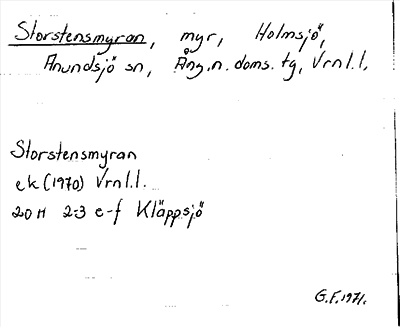 Storstensmyran, myr, Holmsjö,
Anundsjö sn, Ång.n.doms.tg, Vrnl.l.
Storstensmyran
ek (1970) Vrnl.l.
20 H 2-3 e-f Kläppsjö
G.F. 1971.